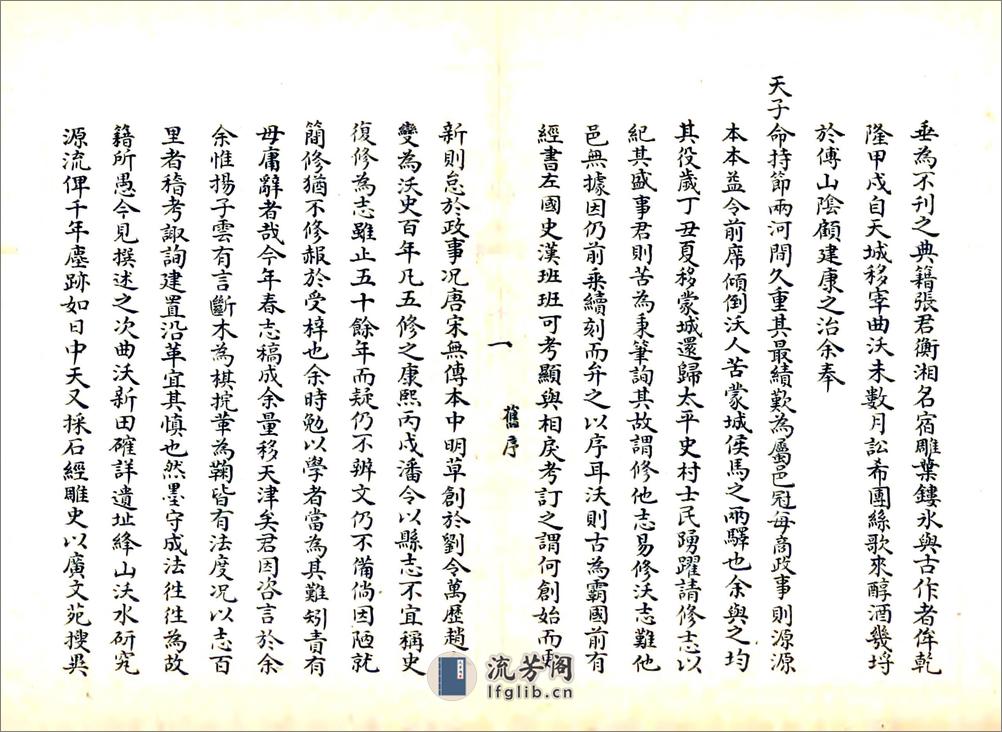 垂為不刊之典籍張君衡湘名宿雕葉鏤氷與古作者侔乾
隆甲戍自天城移宰曲沃未數月訟希團絲歌來醇酒幾埒
於傅山陰顧建康之治余奉
天子命持節兩河間久重其最績歎為屬邑冠每商政事則源源
本本益令前席傾倒沃人苦蒙城侯馬之兩驛也余與之均
其役歲丁丑夏移蒙城還歸太平史村士民踴躍請修志以
紀其盛事君則苦為秉筆詢其故謂修他志易修沃志難他
邑無據因仍前乗續刻而弁之以序耳沃則古為霸國前有
經書左國史漢班班可考顯與相戾考訂之謂何創始而
一
舊序
新則怠於政事况唐宋無傳本中明草創於劉令萬歷趙
變為沃史百年凡五修之康熙丙戍潘令以縣志不宜稱史
復修為志雖止五十餘年而疑仍不辨文仍不備倘因陋就
簡修猶不修赧於受梓也余時勉以學者當為其難矧責有
毋庸辭者哉今年春志稿成余量移天津矣君因咨言於余
余惟揚子雲有言斷木為棋捖革為鞠皆有法度况以志百
里者稽考諏詢建置沿革宜其慎也然墨守成法徃徃為故
籍所愚今見撰述之次曲沃新田確詳遺址絳山沃水研究
源流俾千年塵跡如日中天又採石經雕史以廣文苑搜吳
流芳阁
lfglib.cn